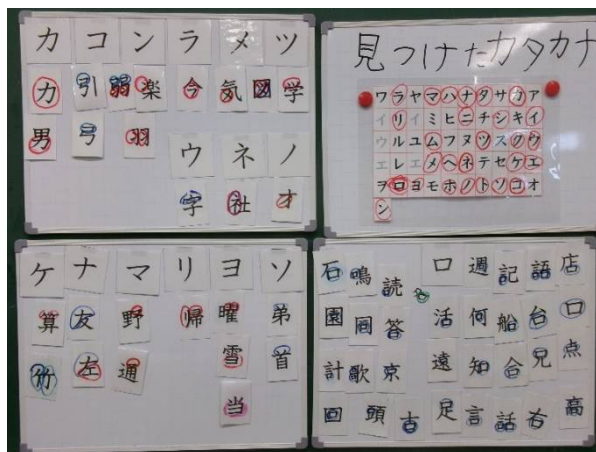 カ コ ン ラ メ ツ
力 引 弱 楽 今 気 図 学
男 弓 羽
ウ ネ ノ
字 社 才
見つけたカタカナ
ワ ラ ヤ マ ハ ナ タ サ カ ア
イ リ イ ミ ヒ ニ チ シ キ イ
ウ ル ユ ム フ ヌ ツ ス ク ウ
エ レ エ メ ヘ ネ テ セ ケ エ
ヲ ロ ヨ モ ホ ノ ト ソ コ オ
ン
ケ ナ マ リ ヨ ソ
算 友 野 帰 曜 弟
竹 左 通 雪 首
当
石 鳴 読 ロ 週 記 語 店
園 回 答 活 何 船 台 口
計 歌 京 遠 知 合 兄 点
回 頭 古 足 言 話 右 高